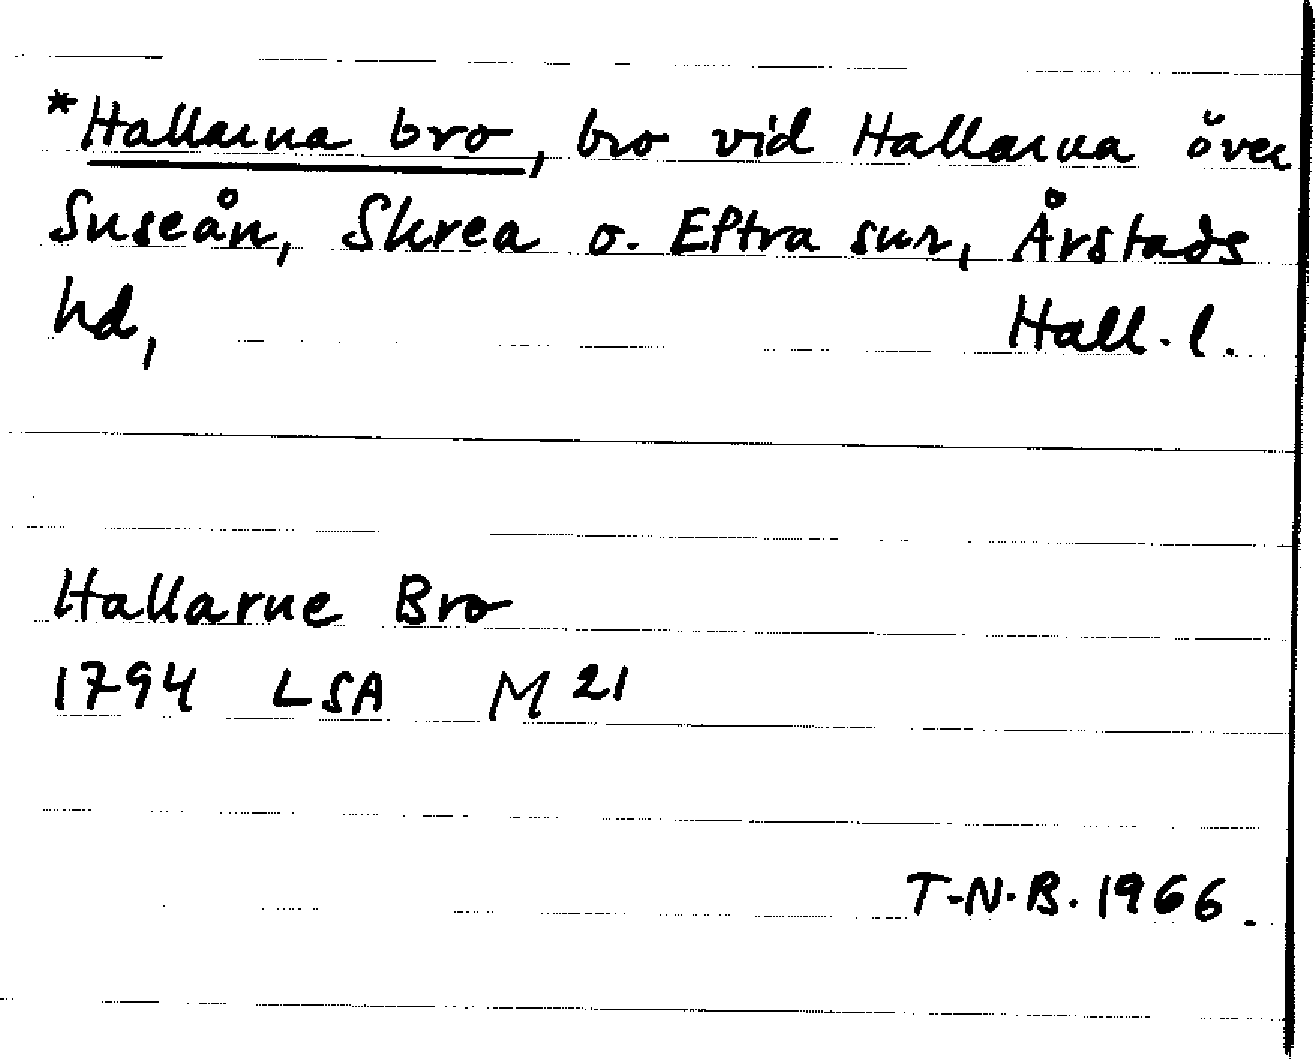 *Hallarna bro, bro vid Hallarna över
Suseån, Skrea o. Eftra snr, Årstads
hd, Hall. l.
Hallarne Bro
1794 LSA M 21
T-N.B. 1966.